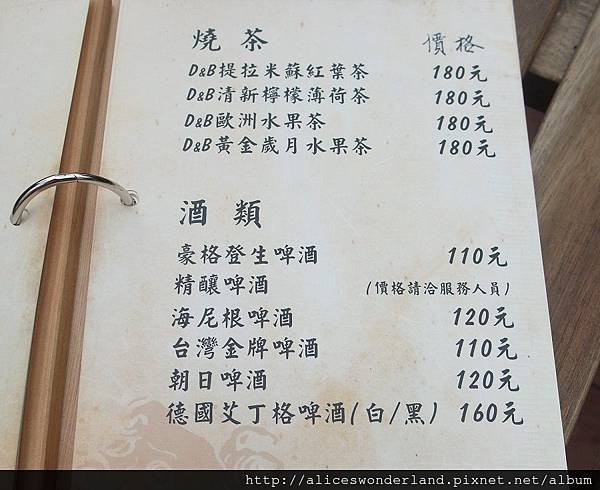 燒茶 價格
D&B提拉米蘇紅葉茶 180元
D&B清新檸檬薄荷茶 180元
D&B歐洲水果茶 180元
D&B黃金歲月水果茶 180元
酒類
豪格登生啤酒 110元
精釀啤酒 (價格請洽服務人員)
海尼根啤酒 120元
台灣金牌啤酒 110元
朝日啤酒 120元
德國艾丁格啤酒(白/黑) 160元
http://aliceswonderland.pixnet.net/album